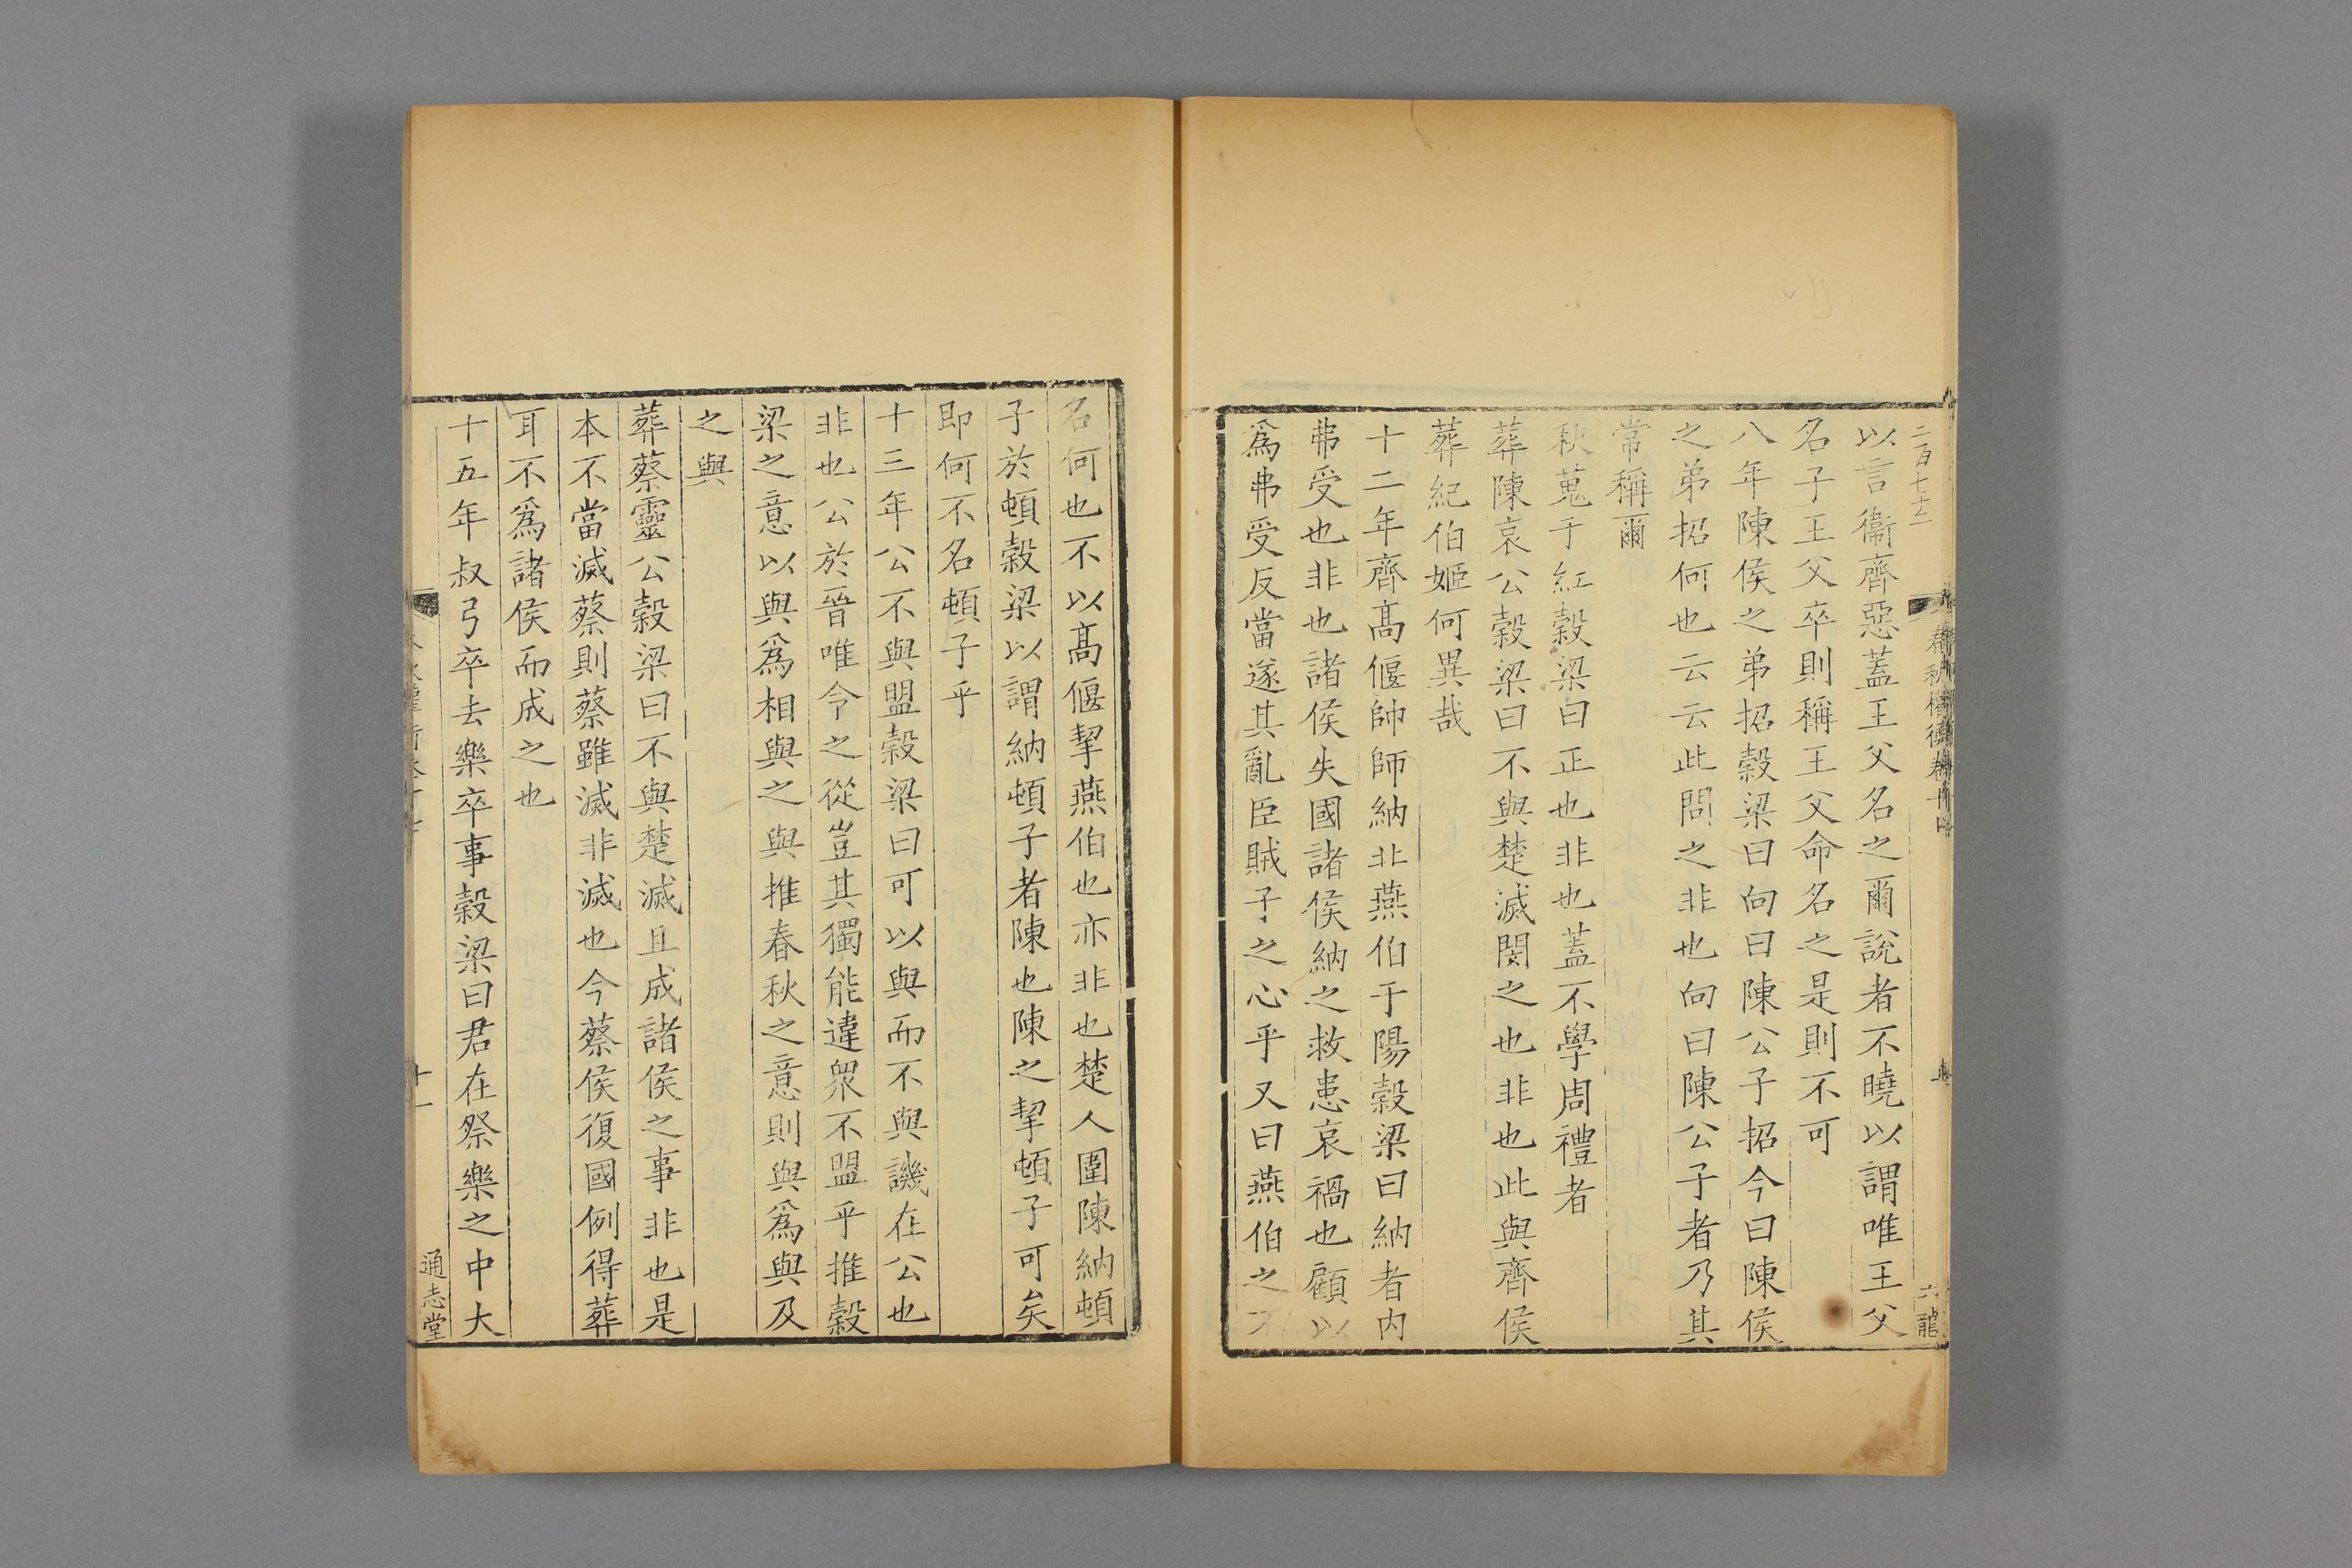 以言衞齊惡蓋王父名之爾說者不曉以謂唯王父
名子王父卒則稱王父命名之是則不可
八年陳侯之弟招穀梁曰向曰陳公子招今曰陳侯
之弟招何也云云此問之非也向曰陳公子者乃其
常稱爾
秋蒐于紅穀梁曰正也非也蓋不學周禮者
葬陳哀公穀梁曰不與楚滅閔之也非也此與齊侯
葬紀伯姬何異哉
十二年齊髙偃帥師納北燕伯于陽穀梁曰納者内
弗受也非也諸侯失國諸侯納之救患哀禍也顧以
爲弗受反當遂其亂臣賊子之心乎又曰燕伯之不
名何也不以髙偃挈燕伯也亦非也楚人圍陳納頓
子於頓穀梁以謂納頓子者陳也陳之挈頓子可矣
即何不名頓子乎
十三年公不與盟穀梁曰可以與而不與譏在公也
非也公於晉唯令之從豈其獨能違衆不盟乎推穀
梁之意以與爲相與之與推春秋之意則與爲與及
之與
葬蔡靈公穀梁曰不與楚滅且成諸侯之事非也是
本不當滅蔡則蔡雖滅非滅也今蔡侯復國例得葬
耳不爲諸侯而成之也
十五年叔弓卒去樂卒事穀梁曰君在祭樂之中大
十一
通志堂